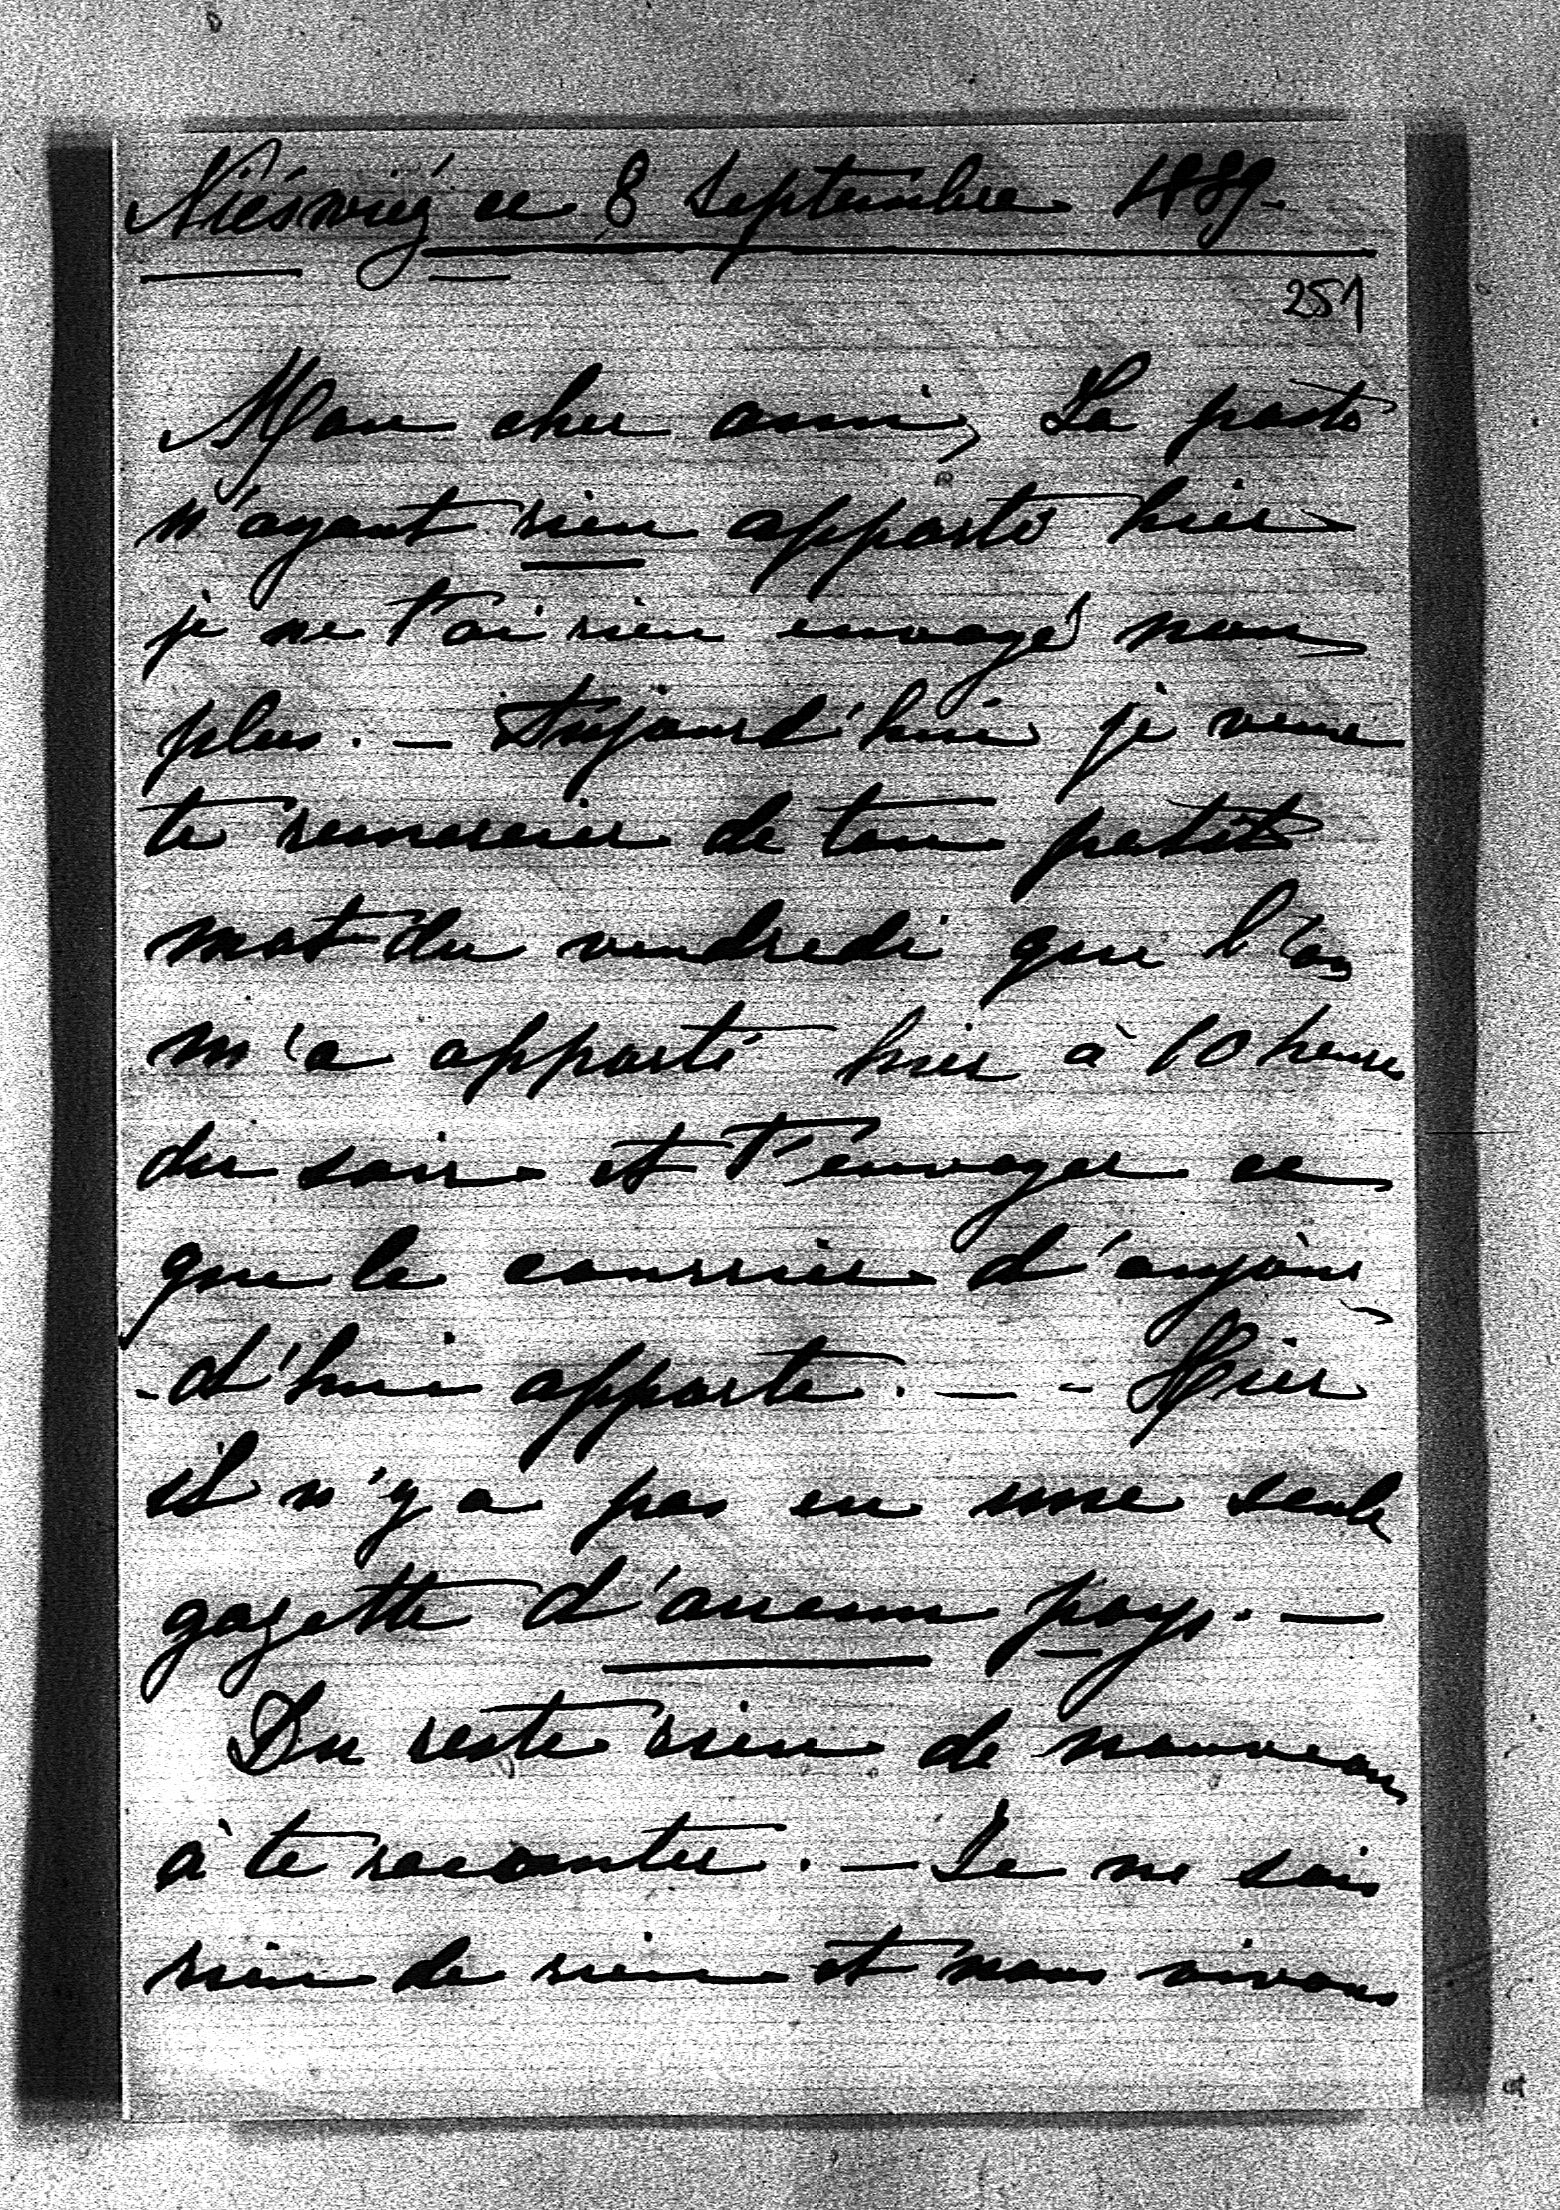 Nieświéż ce 8 Septembre 1889.
251
Mon cher ami, La poste
n'ayant rien apporté hier
je ne t'ai rien envoyé non
plus. — Aujourd'hui je viens
te remercier de ton petit
mot du vendredi que l'on
m'a apporté hier à 10 heures
du soir et t'envoyer ce
que le courrier d'aujour
-d'hui apporte. — - Hier
il n'y a pas eu une seule
gazette d'aucun pays. —
Du reste rien de nouveau
à te raconter. — Je ne sais
rien de rien et nous vivons